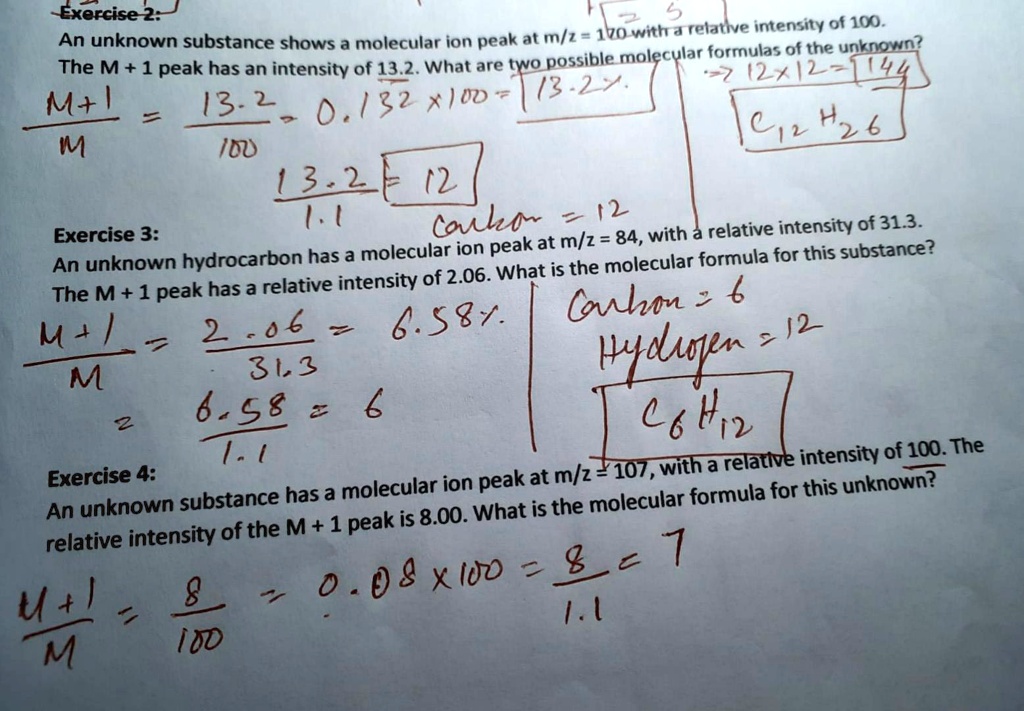 2 5
Exercise 2:
An unknown substance shows a molecular ion peak at m/z = 170 with a relative intensity of 100.
The M + 1 peak has an intensity of 13.2. What are two possible molecular formulas of the unknown?
M+1 / M = 13.2 / 100 = 0.132 x100 = 13.2%.
→ 12x12=144
C12 H26
13.2 / 1.1 = 12
Carbon = 12
Exercise 3:
An unknown hydrocarbon has a molecular ion peak at m/z = 84, with a relative intensity of 31.3.
The M + 1 peak has a relative intensity of 2.06. What is the molecular formula for this substance?
M+1 / M = 2.06 / 31.3 = 6.58%.
= 6.58 / 1.1 = 6
Carbon = 6
Hydrogen = 12
C6H12
Exercise 4:
An unknown substance has a molecular ion peak at m/z = 107, with a relative intensity of 100. The
relative intensity of the M + 1 peak is 8.00. What is the molecular formula for this unknown?
M+1 / M = 8 / 100 = 0.08 x100 = 8 / 1.1 = 7